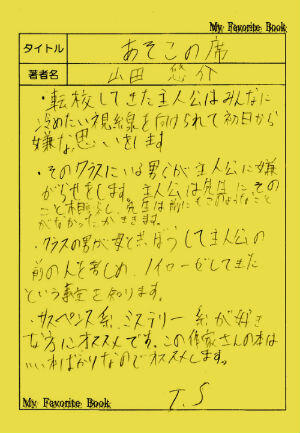 My Favorite Book
タイトル あそこの席
著者名 山田 悠介
・転校してきた主人公はみんなに
冷めたい視線を向けられて初日から
嫌な思いをします
・そのクラスにいる男くが主人公に嫌
がらせをします。主人公は先生に、その
こと相談し、先生は前にもこのようなこと
がなかったかききます。
・クラスの男が女と
して主人公の
前の人を苦しめ、ノイローゼしてきた
という事実を知ります。
・サスペンス系、ミステリー系が好き
な方にオススメです。この作家さんの本は
いい本ばかりなのでオススメします。
My Favorite Book
T.S